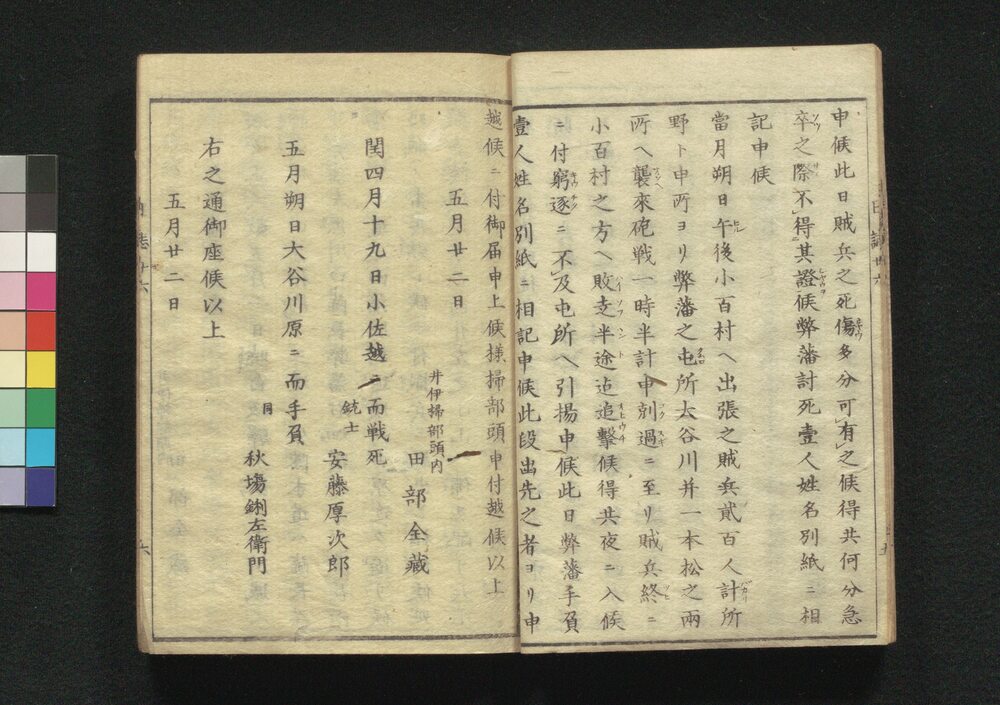 申候此日賊兵之死傷多分可有之候得共何分急
卒之際不得其證候弊藩討死壹人姓名別紙ニ相
記申候
當月朔日午後小百村ヘ出張之賊兵貳百人計所
野ト申所ヨリ弊藩之屯所大谷川并一本松之兩
所ヘ襲來砲戦一時半計申刻過ニ至リ賊兵終ニ
小百村之方ヘ敗走半途迄追擊候得共夜ニ入候
ニ付窮逐ニ不及屯所ヘ引揚申候此日弊藩手負
壹人姓名別紙ニ相記申候此段出先之者ヨリ申
越候ニ付御届申上候様掃部頭申付越候以上
五月廿二日
井伊掃部頭内
田部全藏
閏四月十九日小佐越ニ而戦死
銃士
安藤厚次郎
五月朔日大谷川原ニ而手負
同
秋場鉶左衛門
右之通御座候以上
五月廿二日
六